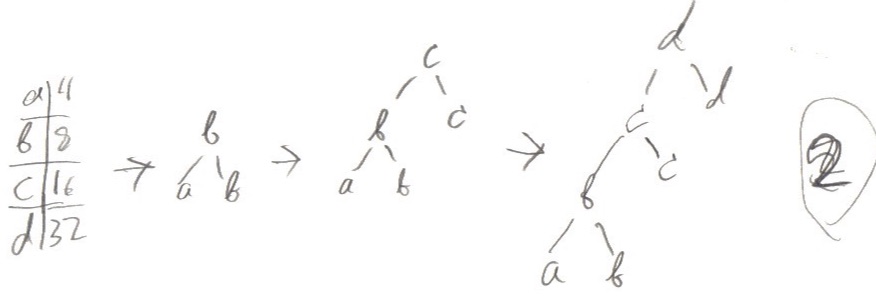 a|4
b|8
c|16
d|32
→
b
a b
→
c
b c
a b
→
d
c d
b c
a b
2